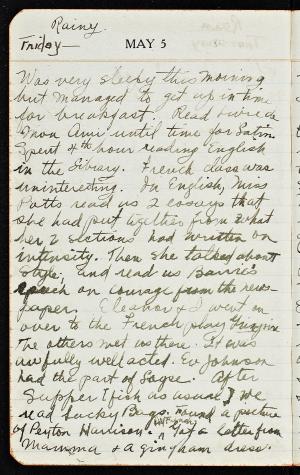 Rainy
Friday — MAY 5
Was very sleepy this morning
but managed to get up in time
for breakfast. Read
Mon Ami until time for Latin
Spent 4th hour reading English
in the library. French class was
uninteresting. In English, Miss
Potts read us 2 essays that
she had put together from what
her 2 sections had written on
intensity. Then she talked about
style, and read us Barrie's
speech on courage from the news-
paper. Eleanor & I went on
over to the French play
The others met us there. It was
awfully well acted. Ev Johnson
had the part of After
supper I fish as usual, & we
read Lucky Bags. Found a picture
of Peyton Harrison. Got a letter from
Mamma & a gingham dress.